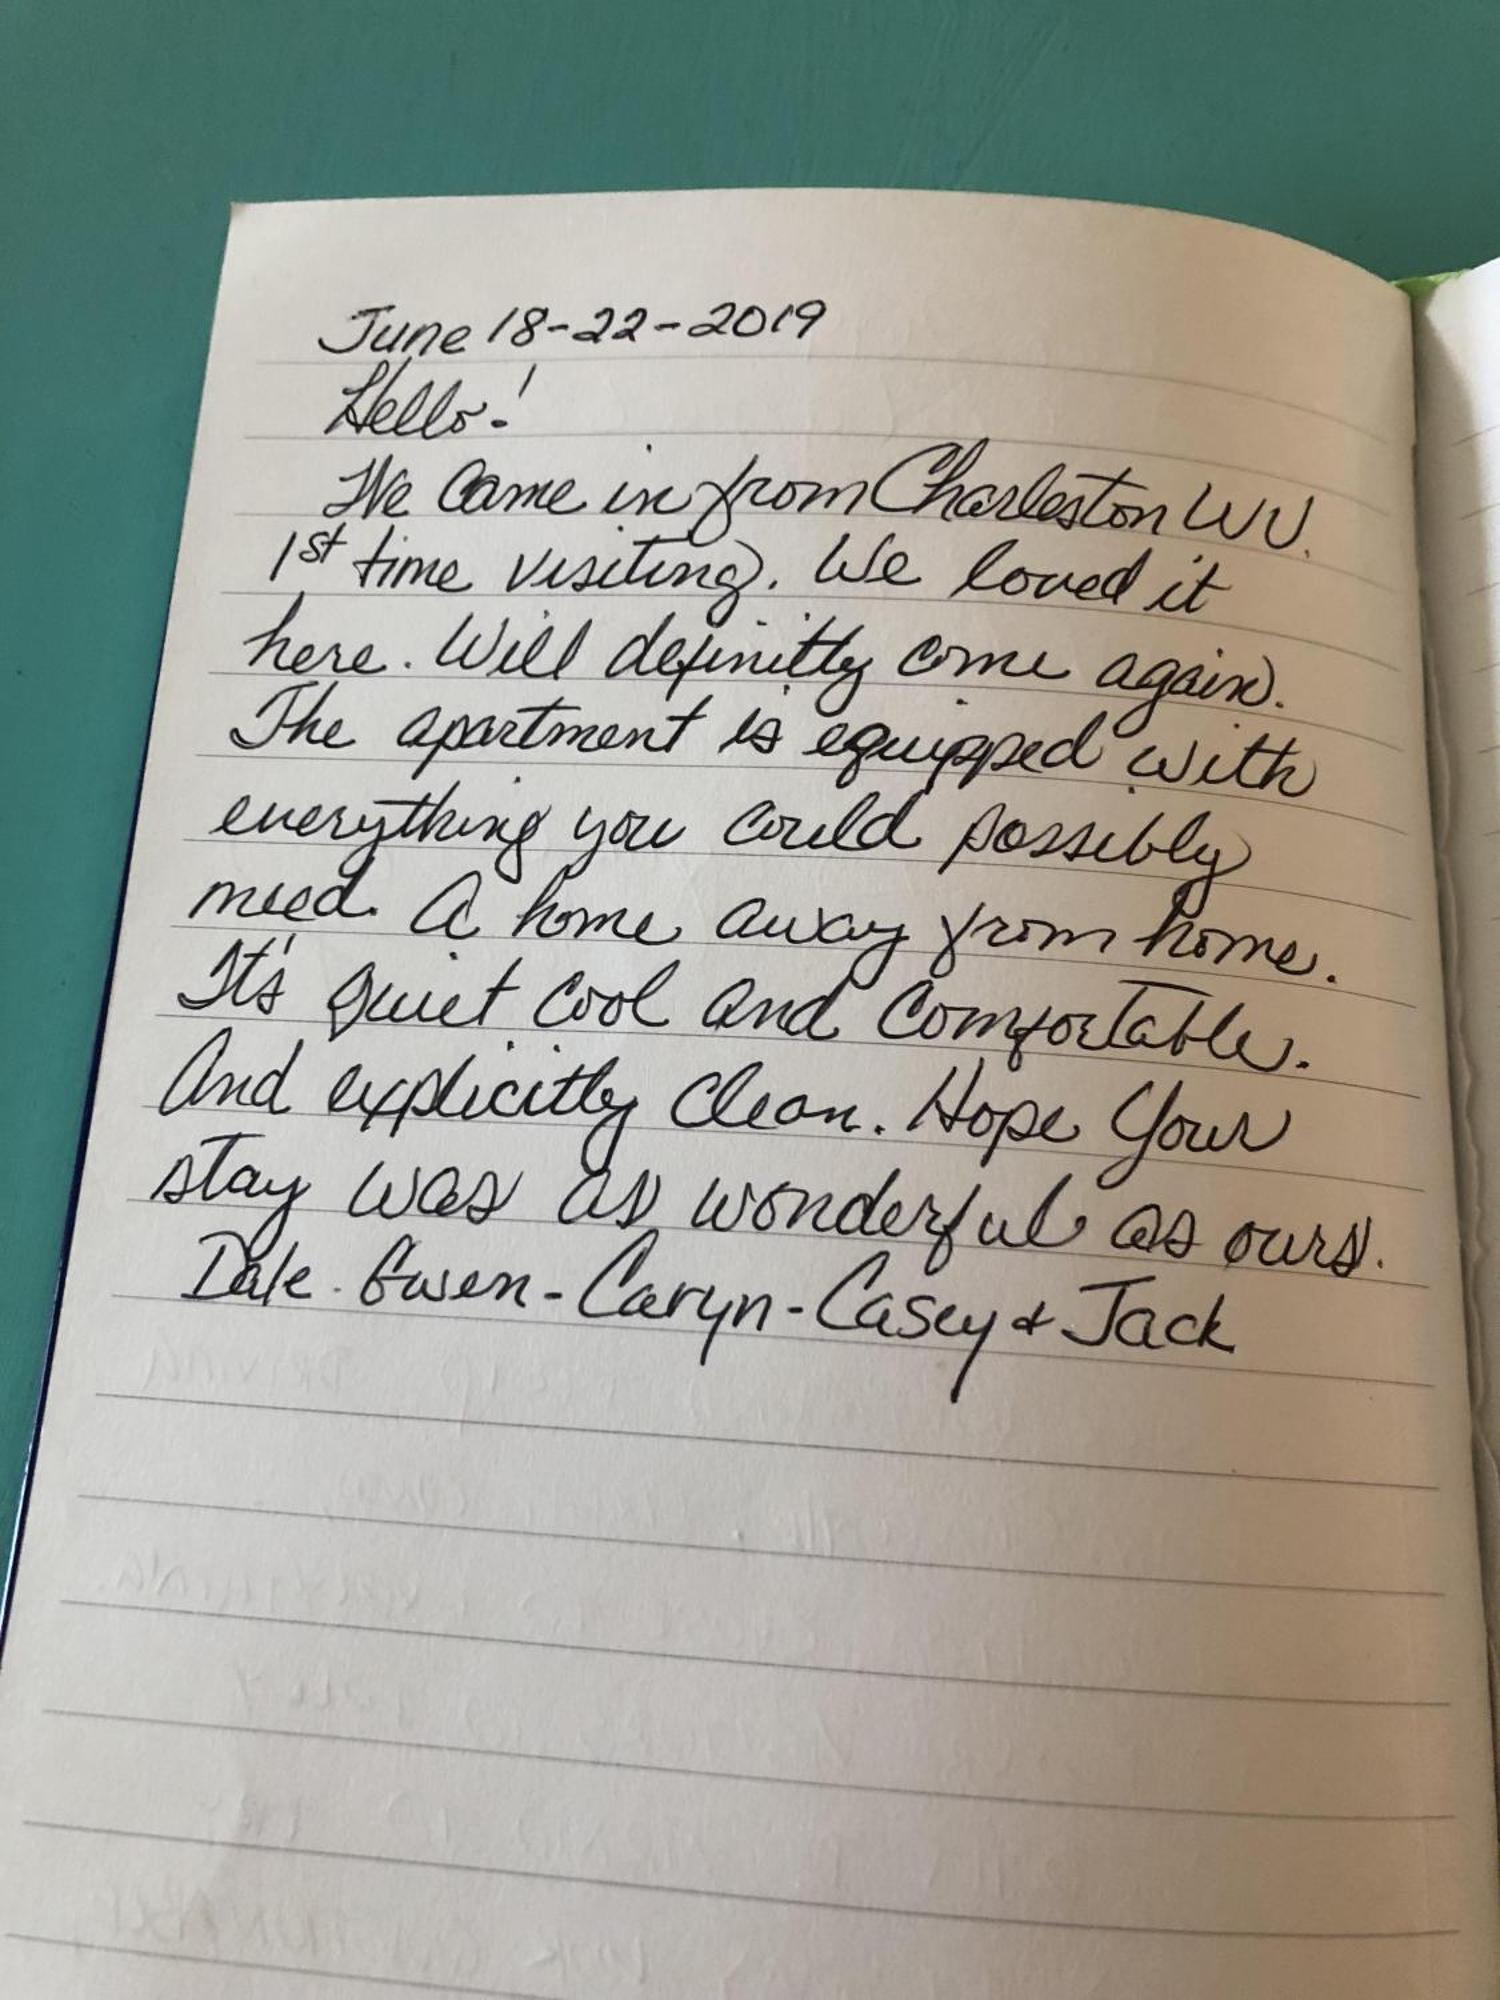 June 18-22-2019
Hello!
We came in from Charleston WV.
1st time visiting. We loved it
here. Will definitly come again.
The apartment is equipped with
everything you could possibly
need. A home away from home.
It's quiet cool and comfortable.
And explicitly clean. Hope your
stay was as wonderful as ours.
Dale - Gwen - Caryn - Casey & Jack